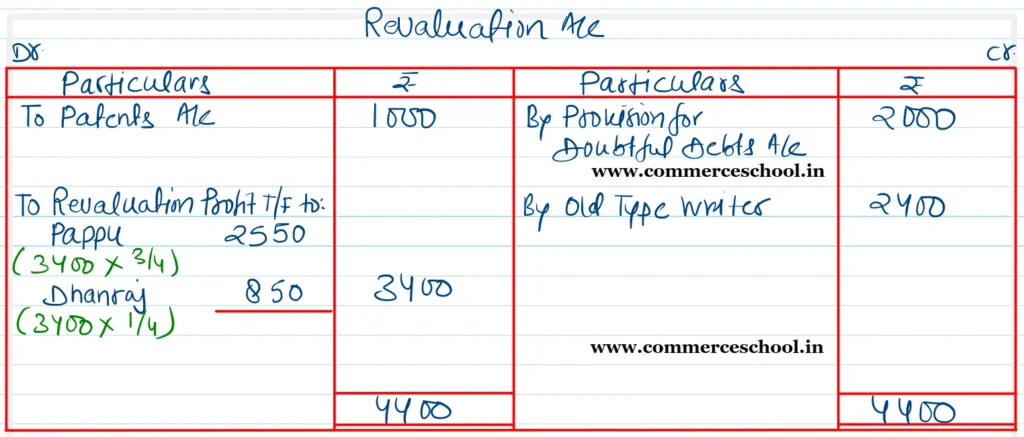 Revaluation A/c
Dr. Cr.
Particulars ₹ Particulars ₹
To Patents A/c 1000 By Provision for 2000
Doubtful Debts A/c
www.commerceschool.in
To Revaluation Profit T/F to: By Old Type Writer 2400
Pappu 2550
(3400 × 3/4)
Dhanraj 850 3400
(3400 × 1/4)
www.commerceschool.in
4400 4400